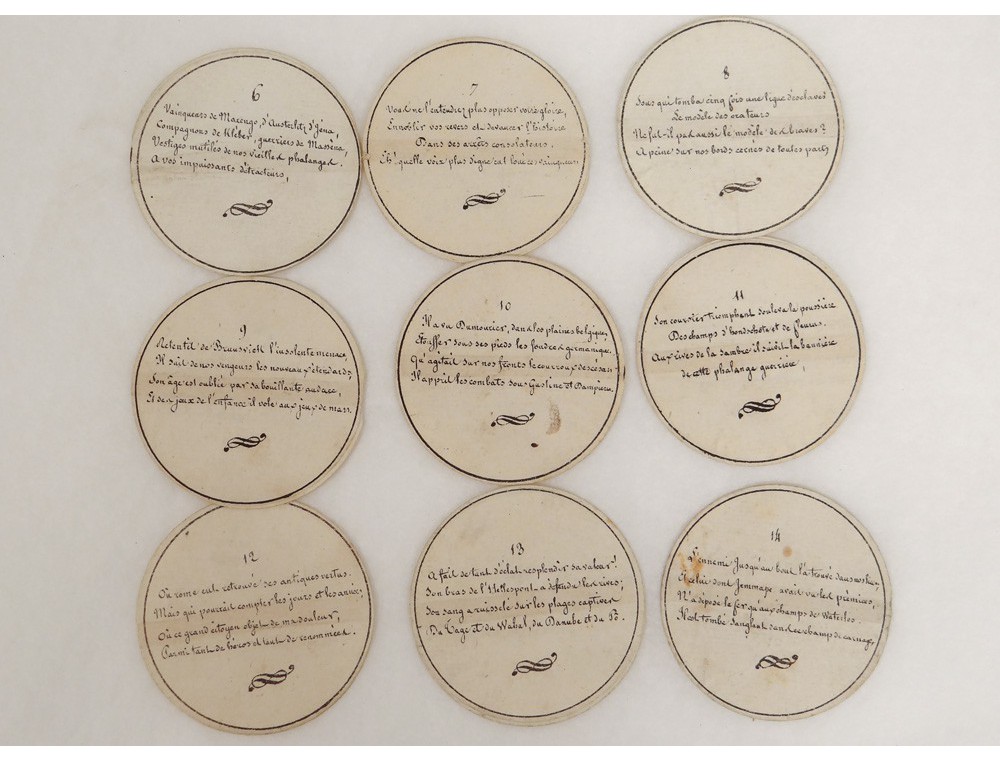 6
Vainqueurs de Marengo, d'Austerlitz d'Jéna,
Compagnons de Kléber, guerriers de Masséna
Vestiges mutilés de nos vieilles phalanges!
A vos impuissants détracteurs,
7
Vous ne l'entendrez plus opposer votre gloire,
Ennoblir vos revers et devancer l'histoire
Dans ses accens consolateurs.
Eh! quelle voix plus digne eut loué ces vainqueurs
8
Sous qui tomba cinq fois une ligue d'esclaves
Le modèle des orateurs
Ne fut-il pas aussi le modèle des braves?
A peine sur nos bords cernés de toutes parts
9
Retentit de Brunsvick l'insolente menace,
Il suit de nos vengeurs les nouveaux étendards;
Son âge est oublié par sa bouillante audace,
Et des jeux de l'enfance il vole aux jeux de mars.
10
Il a vu Dumourier, dans les plaines belgiques,
Etouffer sous ses pieds les foudres germaniques,
Qu'agitait sur nos fronts le courroux des césars
Il apprit les combats sous Custine et Dampierre.
11
Son coursier triomphant souleva la poussière
Des champs d'hondschote et de fleurus.
Aux rives de la sambre il suivit la bannière
de cette phalange guerrière,
12
Où rome eut retrouvé ses antiques vertus.
Mais qui pourrait compter les jours et les années,
Où ce grand citoyen objet de ma douleur,
Parmi tant de héros et tant de renommées.
13
A fait de tant d'éclat resplendir sa valeur!
Son bras de l'Hellespont a défendu les rives;
Son sang a ruisselé sur les plages captives
Du Tage et du Wahal, du Danube et du Pô.
14
L'ennemi Jusqu'au bout l'a trouvé dans
Et celui dont Jemmape avait vu les prémices,
N'a déposé le fer qu'aux champs de Waterloo
Il est tombé sanglant dans ce champs de carnage,